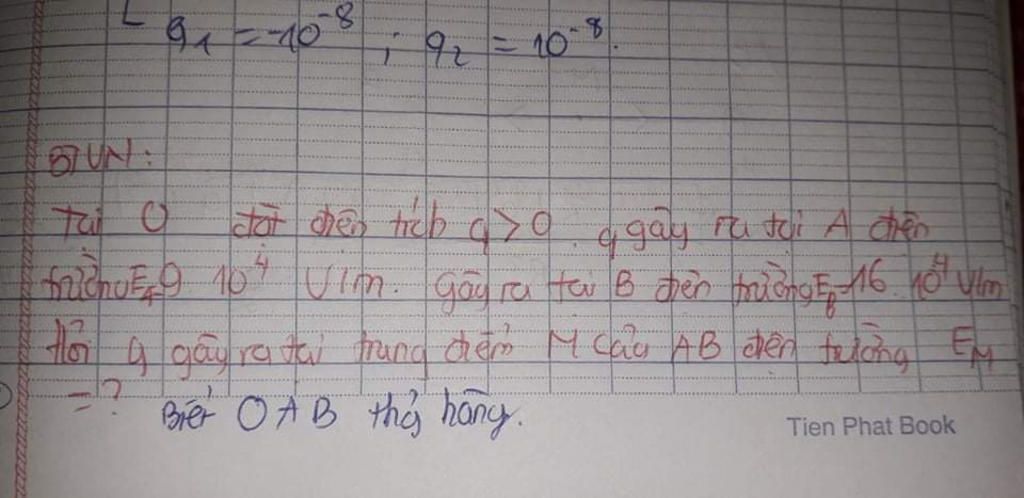 q₁ = -10⁻⁸ ; q₂ = 10⁻⁸.
BTVN:
Tại O đặt điện tích q>0. q gây ra tại A điện
trường E_A=9 10⁴ V/m. Gây ra tại B điện trường E_B=16. 10⁴ V/m
Hỏi q gây ra tại trung điểm M của AB điện trường E_M
= ? Biết O A B thẳng hàng.
Tien Phat Book